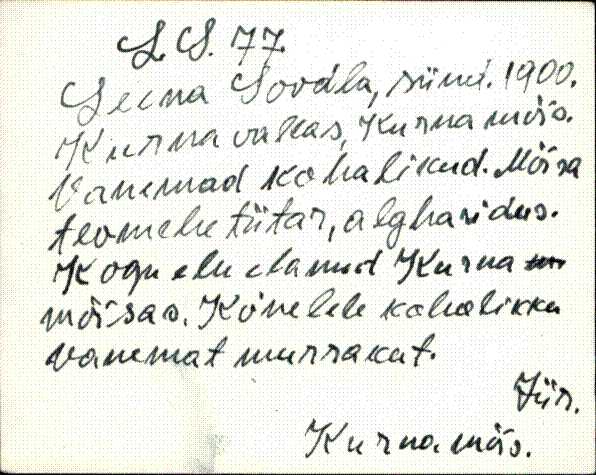 L. S. 77.
Leena Soodla, sünd. 1900.
Kurna vallas, Kurna mõis.
Vanemad kohalikud. Mõisa
teomehe tütar, algharidus.
Kogu elu elanud Kurna
mõisas. Kõneleb kohalikku
vanemat murrakut.
Jür.
Kurna mõis.